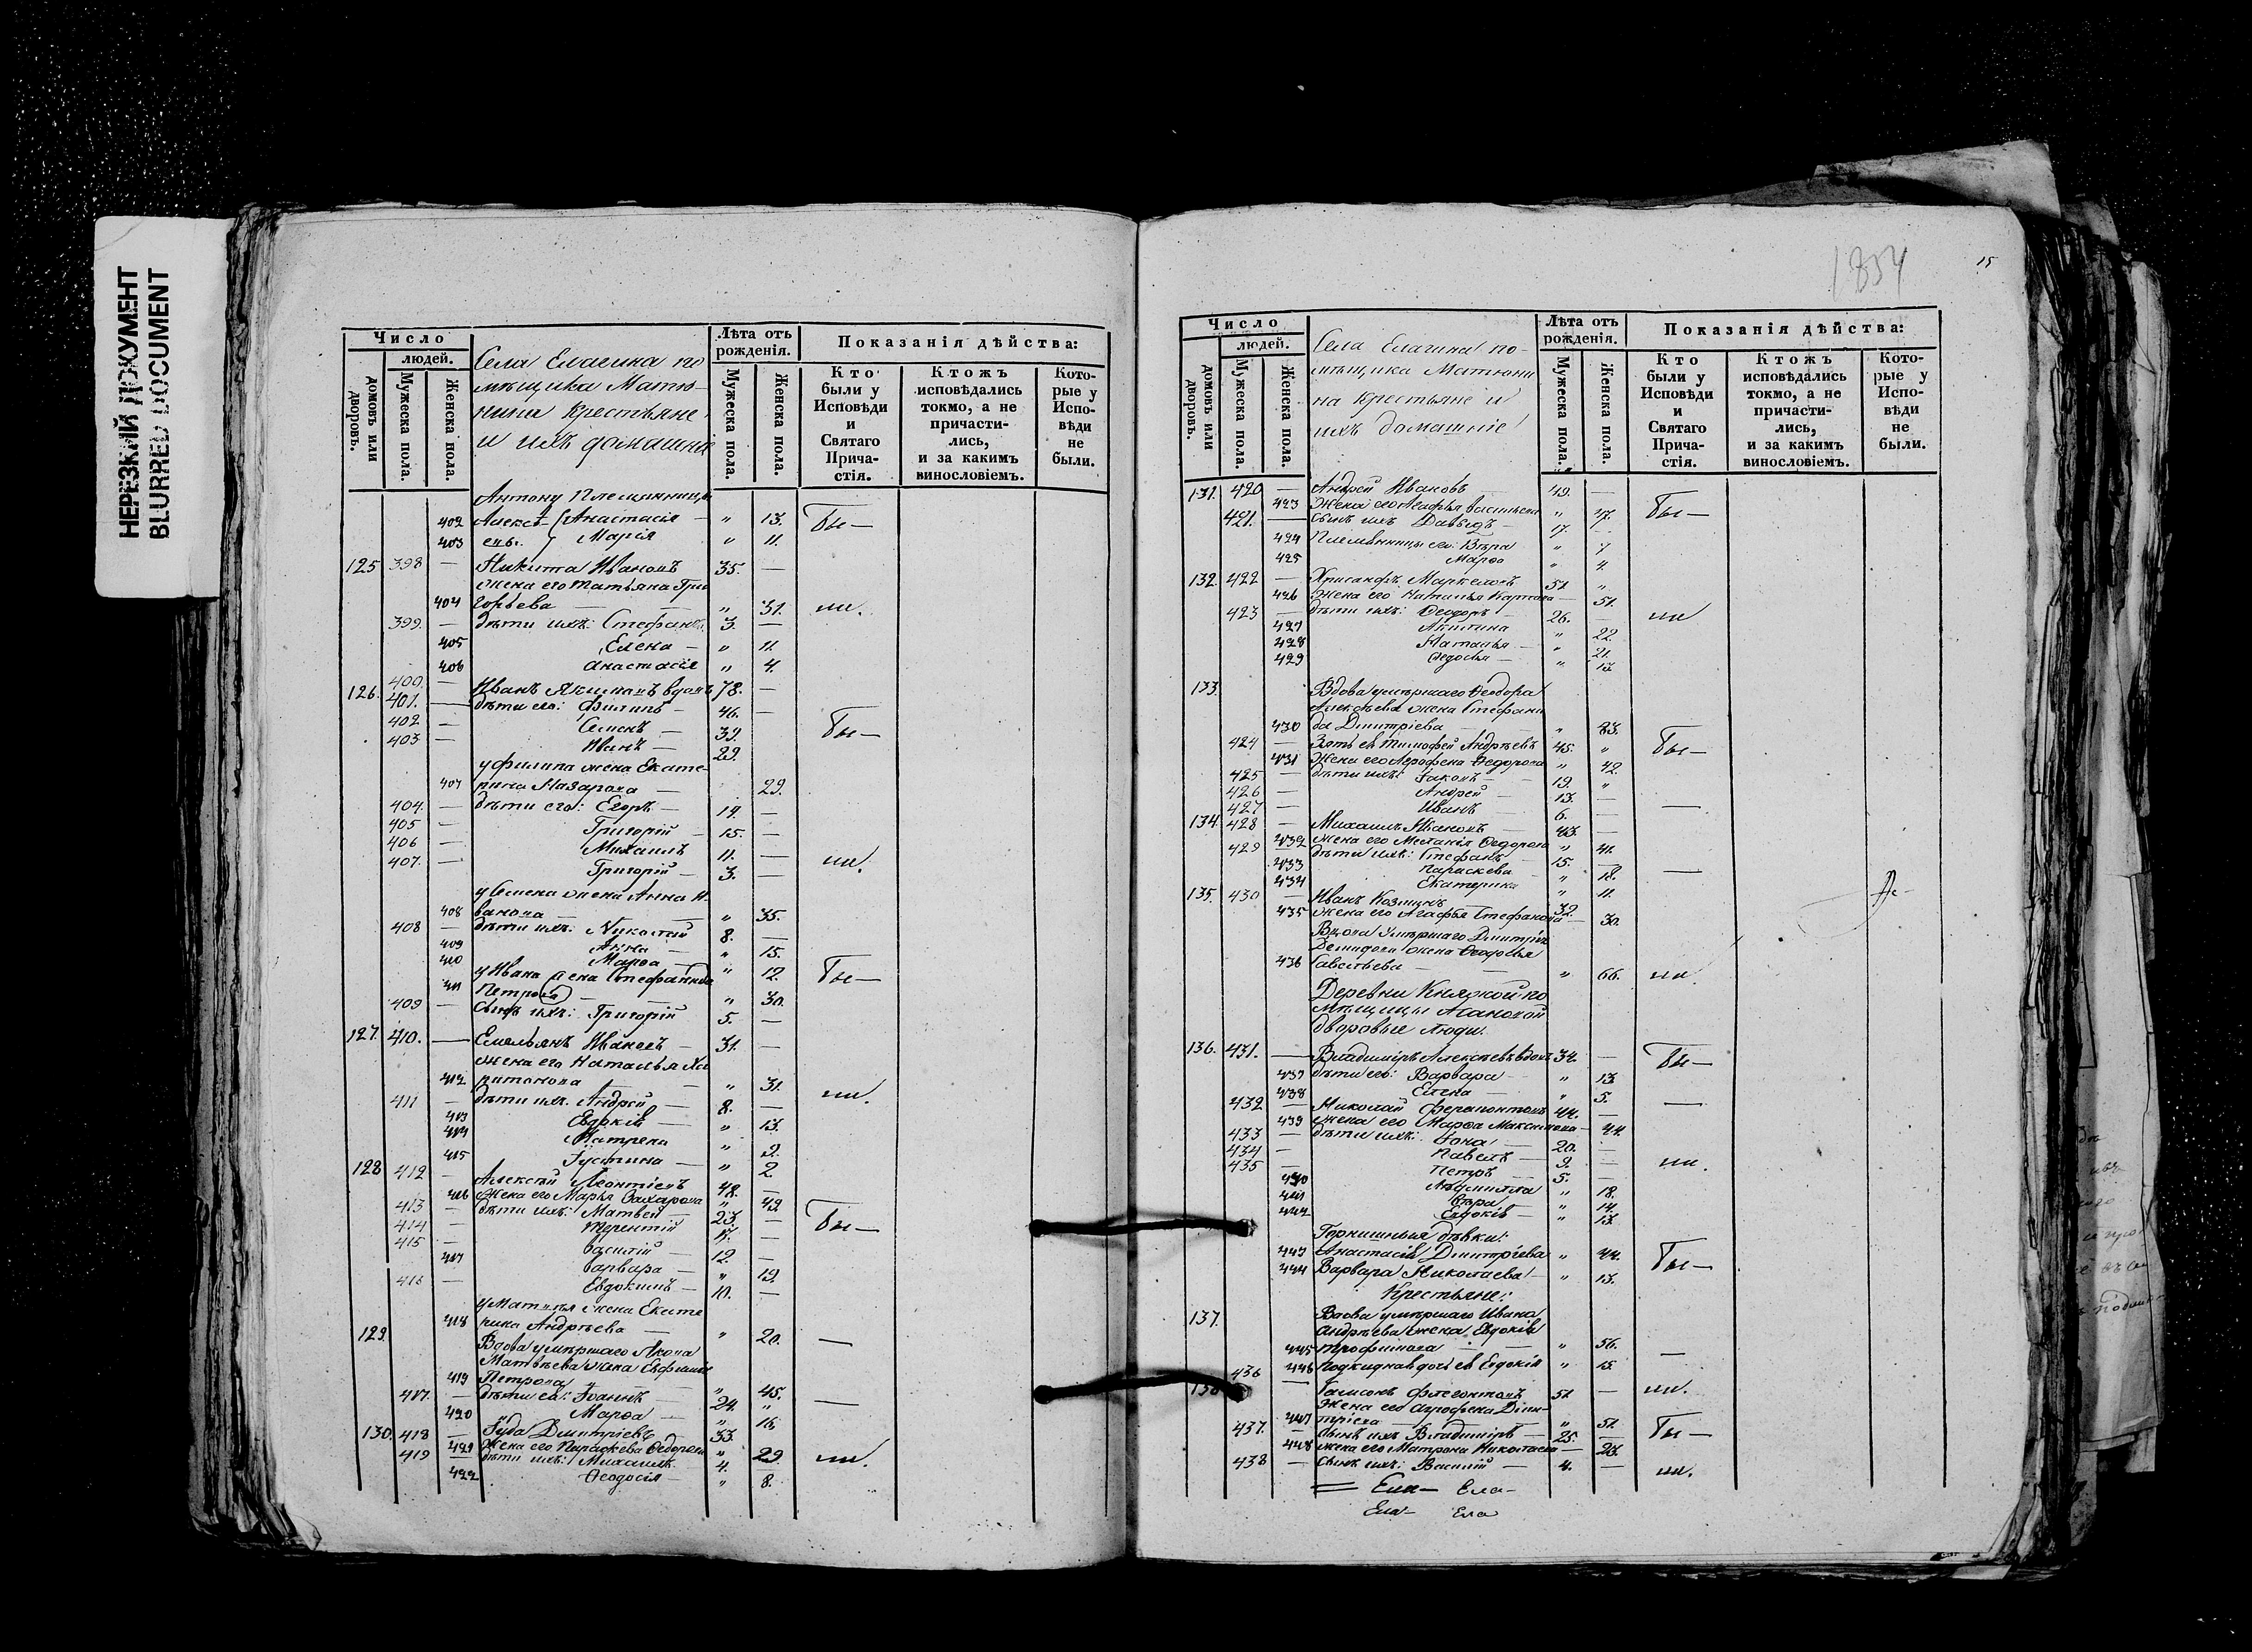 НЕРЕЗКИЙ ДОКУМЕНТ
BLURRED DOCUMENT
Число
людей.
домовъ или дворовъ.
Мужеска пола.
Женска пола.
Села Елагина по
мѣщика Матю-
нина крестьяне
и ихъ домашніе
Лѣта отъ рожденія.
Мужеска пола.
Женска пола.
Показанія дѣйства:
Кто были у Исповѣди и Святаго Прича-стія.
Ктожъ исповѣдались токмо, а не причасти-лись, и за какимъ винословіемъ.
Кото-рые у Испо-вѣди не были.
Антону
402 Анастасія — " 13. Бы—
403 Марія " 11.
125 398 — Никита Ивановъ 35. —
жена его Татьяна Гри
404 горьева — " 31. ли.
399. — дѣти ихъ: Стефанъ 3. —
405 Елена — " 11.
406 Анастасія " 4.
126. 400. — Иванъ вдовъ 78. —
401. — дѣти его: Филипъ — 46. —
402 — Семенъ — 39. Бы—
403 — Иванъ — 29.
у Филипа жена Екате-
407 рина Назарова — 29.
404. — дѣти его: Егоръ — 19. —
405 — Григорій — 15. —
406 — Михаилъ 11. —
407. — Григорій — 3. — ли.
у Семена жена Анна И-
408 ванова — " 35.
408 — дѣти ихъ: Николай 8. —
409 Анна — " 15.
410 Марѳа — " 12. Бы—
у Ивана жена Стефанида
411 Петрова — " 30.
409 — сынъ ихъ: Григорій 5. —
127. 410. — Емельянъ Ивановъ — 31. —
жена его Наталья Ха
412 ритонова — " 31. ли.
411 — дѣти ихъ: Андрей — 8. —
413 Евдокія — " 13.
414 Матрена " 9.
415 Іустина — " 2
128 412 — Алексѣй Леонтіевъ 48. —
416 жена его Марья Захарова " 49.
413 — дѣти ихъ: Матвей — 23. — Бы—
414 — Терентій —
415 — Василій — 12. —
417 Варвара — " 19.
416 — Евдокимъ — 10. —
у Матвѣя жена Екате
418 рина Андрѣева — " 20. —
129. Вдова умѣршаго
Матвѣева жена Евфимія
419 Петрова — " 45.
417. — дѣти ея: Іоаннъ — 24. " —
420 Марѳа — " 16.
130. 418 — Іуда Дмитріевъ 33.
421 жена его Параскева Ѳедорова " 29.
419 — дѣти ихъ: Михаилъ 4. ли.
422 Ѳеодосія — " 8.
1834
15
Число
людей.
домовъ или дворовъ.
Мужеска пола.
Женска пола.
Села Елагина по-
мѣщика Матюни
на крестьяне и
ихъ домашніе
Лѣта отъ рожденія.
Мужеска пола.
Женска пола.
Показанія дѣйства:
Кто были у Исповѣди и Святаго Прича-стія.
Ктожъ исповѣдались токмо, а не причасти-лись, и за какимъ винословіемъ.
Кото-рые у Испо-вѣди не были.
131. 420 — Андрей Ивановъ 49. —
423 жена его Агафья Васильева " 47. Бы—
421. — сынъ ихъ Давыдъ — 17. —
424 Племянницы его: Вѣра " 7
425 Марѳа " 4.
132. 422 — Хрисанфъ Маркеловъ 51 "
426 жена его Наталья Карпова — 51.
423 — дѣти ихъ: Ѳеодоръ — 26. — ли
427 Акилина " 22.
428 Наталья — " 21.
429 Ѳедосья — " 13
133. Вдова умѣршаго Ѳеодора
Алексѣева жена Стефани
430 да Дмитріева " 83.
424 — Зять ея Тимофей Андрѣевъ 45. " Бы—
431 жена его Агрофена Ѳедорова " 42.
425 — дѣти ихъ: Іаковъ — 19. "
426 — Андрей — 13. —
427 — Иванъ 6. —
134 428 — Михаилъ Ивановъ 43. —
432 жена его Меланія Ѳедорова " 41.
429 — дѣти ихъ: Стефанъ — 15. —
433 Параскева — " 18. —
434 Екатерина " 11.
135. 430 — Иванъ 32.
435 жена его Агафья Стефанова — 30.
Вдова умѣршаго Дмитрія
Демидова жена Ѳедосья
436 Савельева — " 66. ли.
Деревни по
мѣщицы
дворовые люди.
136. 431. — Владиміръ Алексѣевъ вдовъ 34. — Бы—
437 дѣти его: Варвара — " 13.
438 Елена — " 5.
432 — Николай Ферапонтовъ 44. —
439 жена его Марѳа Максимова — 44.
433 — дѣти ихъ: Іона 20. —
434 — Павелъ — 9. — ли.
435 — Петръ — 5. —
440 " 18.
441 Вѣра " 14.
442 Евдокія — " 13.
Горнишныя дѣвки:
443 Анастасія Дмитріева " 44. Бы—
444 Варвара Николаева — " 13.
Крестьяне:
137. Вдова умѣршаго Ивана
Андрѣева жена Евдокія
445 Трофимова — " 56. —
446 дочь ея Евдокія " 15
436 — Самсонъ Флегонтовъ 51 — ли.
жена его Агрофена Дми-
447 тріева — " 51. Бы—
437. — сынъ ихъ Владиміръ — 25. —
448 жена его Матрона Николаева — 23.
438 — сынъ ихъ: Василій — 4. — ли.
Ела— Ела—
Ела— Ела